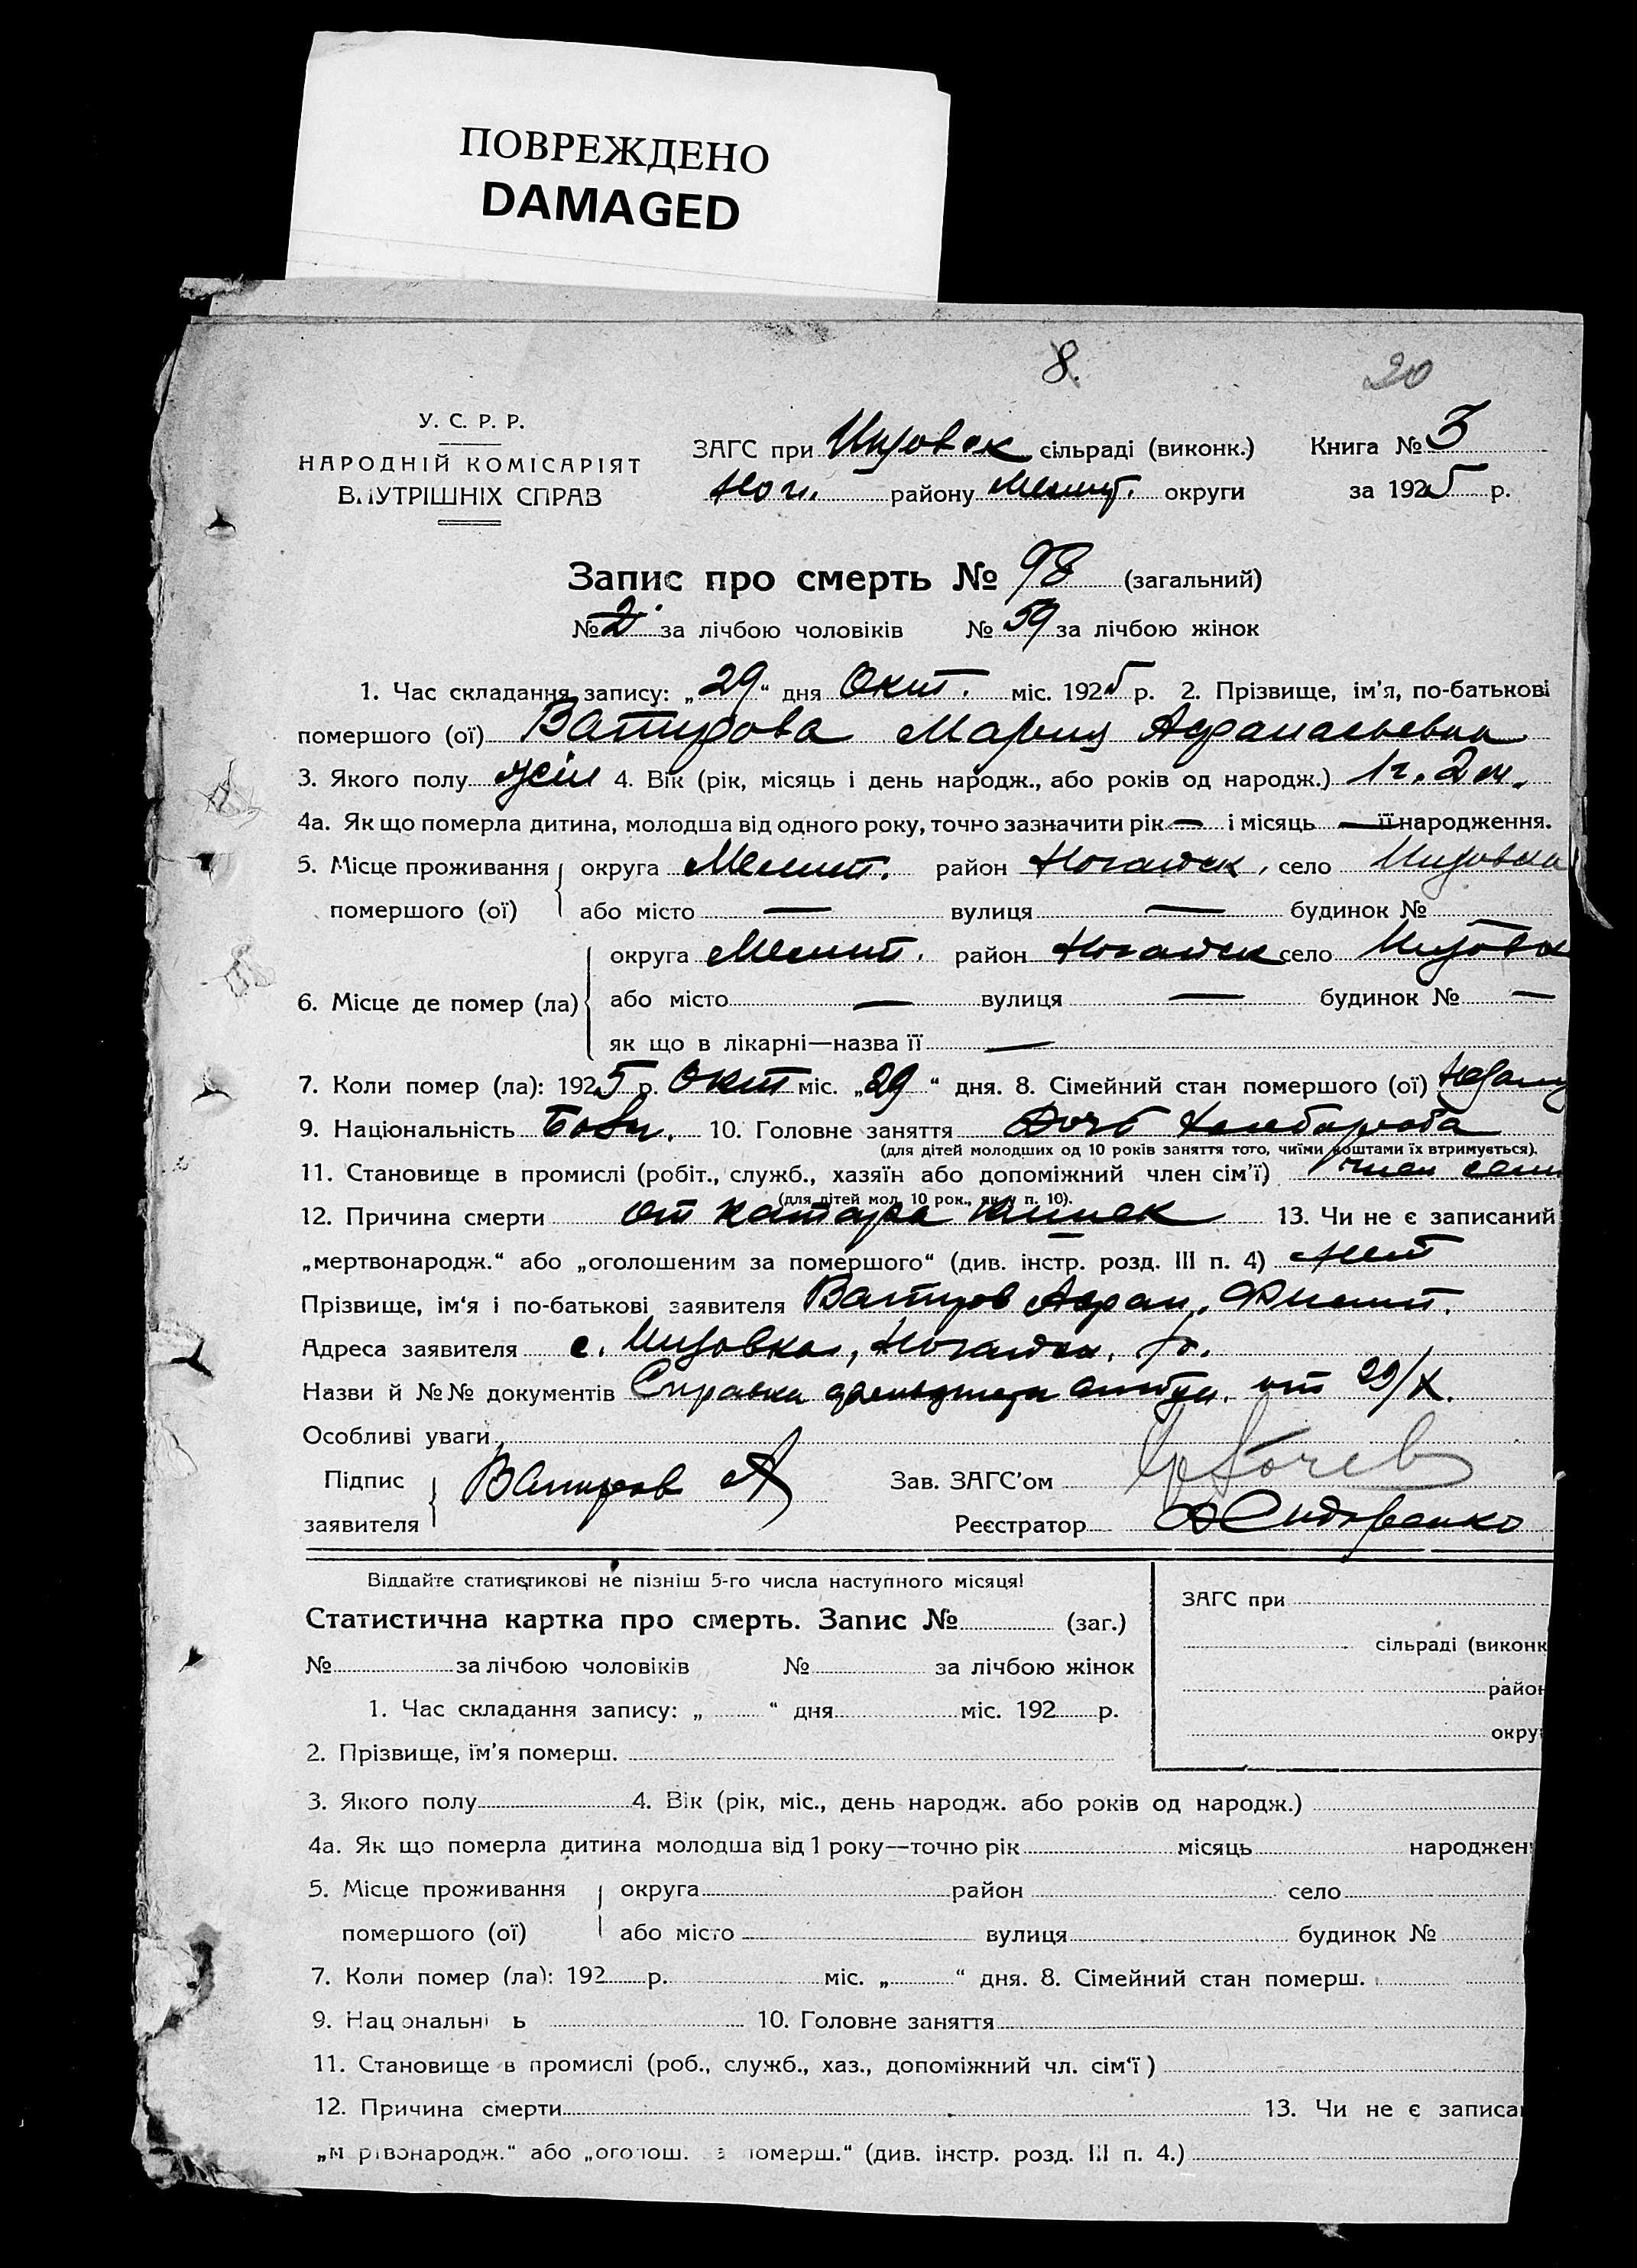 ПОВРЕЖДЕНО
DAMAGED
8.
20
У. С. Р. Р.
НАРОДНІЙ КОМІСАРІЯТ
ВНУТРІШНІХ СПРАВ
ЗАГС при Инзовск сільраді (виконк.) Книга № 3
Ног. району Мелит. округи за 1925 р.
Запис про смерть № 98 (загальний)
№ за лічбою чоловіків № 59 за лічбою жінок
1. Час складання запису: „29“ дня Окт. міс. 1925 р. 2. Прізвище, ім'я, по-батькові
помершого (ої)Ватирова Мария Афанасьевна
3. Якого полу жін 4. Вік (рік, місяць і день народж., або років од народж.) 1 г. 2 м.
4а. Як що померла дитина, молодша від одного року, точно зазначити рік — і місяць — її народження.
5. Місце проживання округа Мелит. район Ногайск, село Инзовка
помершого (ої) або місто — вулиця — будинок №
округа Мелит. район Ногайск село Инзовк
6. Місце де помер (ла) або місто — вулиця — будинок № —
як що в лікарні—назва її —
7. Коли помер (ла): 1925 р. Окт міс. „29“ дня. 8. Сімейний стан помершого (ої)
9. Національність Болг. 10. Головне заняття Дочь Хлебороба
(для дітей молодших од 10 років заняття того, чиїми коштами їх втримується).
11. Становище в промислі (робіт., служб., хазяїн або допоміжний член сім'ї) член семи
(для дітей мол. 10 рок., як у п. 10).
12. Причина смерти от катара кишек 13. Чи не є записаний
„мертвонародж.“ або „оголошеним за помершого“ (див. інстр. розд. III п. 4) Нет
Прізвище, ім'я і по-батькові заявителя Ватиров Афан. Филип.
Адреса заявителя с. Инзовка, Ногайск. р.
Назви й №№ документів Справка фельдшера от 29/X.
Особливі уваги
Підпис Ватиров А Зав. ЗАГС'ом
заявителя Реєстратор Сидоренко
Віддайте статистикові не пізніш 5-го числа наступного місяця!
Статистична картка про смерть. Запис № (заг.)
ЗАГС при
сільраді (виконк
район
округ
№ за лічбою чоловіків № за лічбою жінок
1. Час складання запису: „ “ дня міс. 192 р.
2. Прізвище, ім'я померш.
3. Якого полу 4. Вік (рік, міс., день народж. або років од народж.)
4а. Як що померла дитина молодша від 1 року—точно рік місяць народжен
5. Місце проживання округа район село
помершого (ої) або місто вулиця будинок №
7. Коли помер (ла): 192 р. міс. „ “ дня. 8. Сімейний стан померш.
9. Нац ональні ь 10. Головне заняття
11. Становище в промислі (роб., служб., хаз., допоміжний чл. сім'ї)
12. Причина смерти 13. Чи не є записа
„м ртвонародж.“ або „оголош. з померш.“ (див. інстр. розд. III п. 4.)